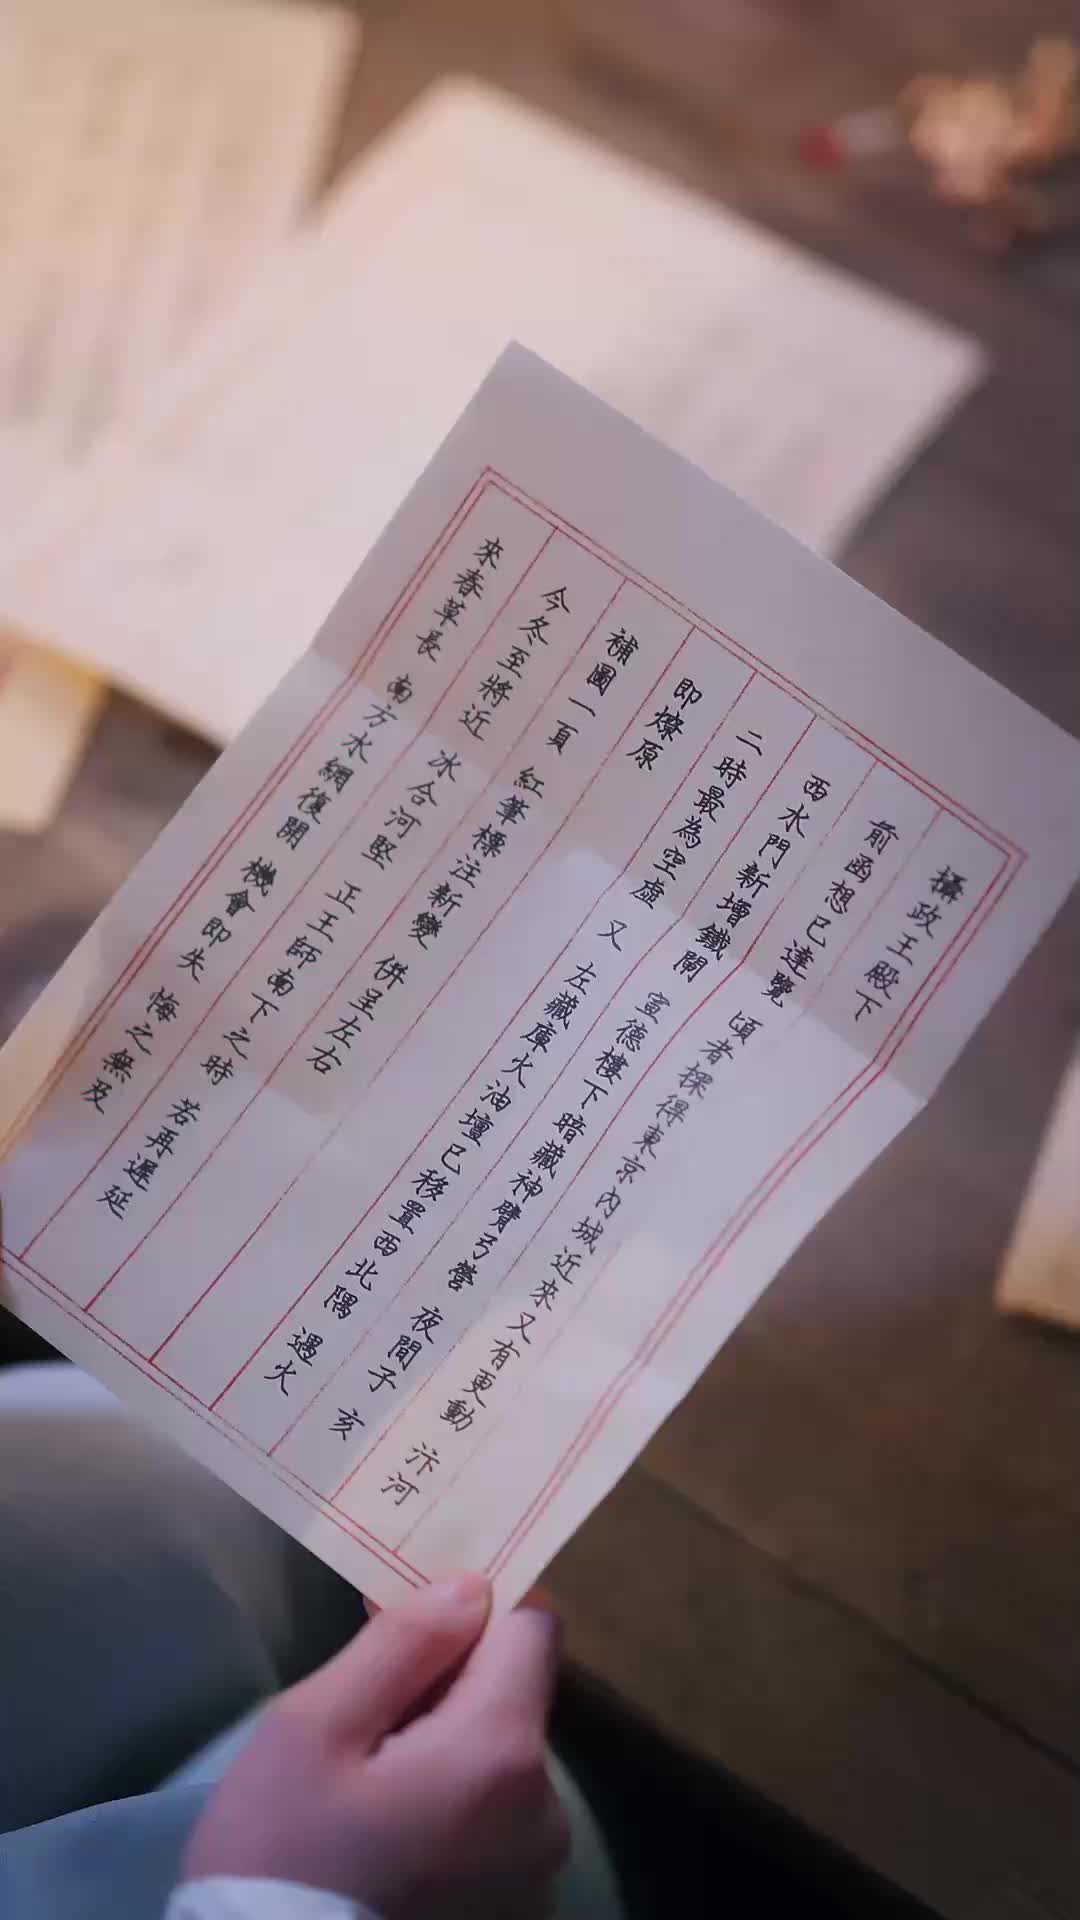 攝政王殿下
前函想已達覽 頃者探得東京內城近來又有更動 汴河
西水門新增鐵閘 宣德樓下暗藏神臂弓營 夜間子 亥
二時最為空虛 又 左藏庫火油壇已移置西北隅 遇火
即燎原
補圖一頁 紅筆標注新變 併呈左右
今冬至將近 冰合河堅 正王師南下之時 若再遲延
來春草長 南方水網復開 機會即失 悔之無及